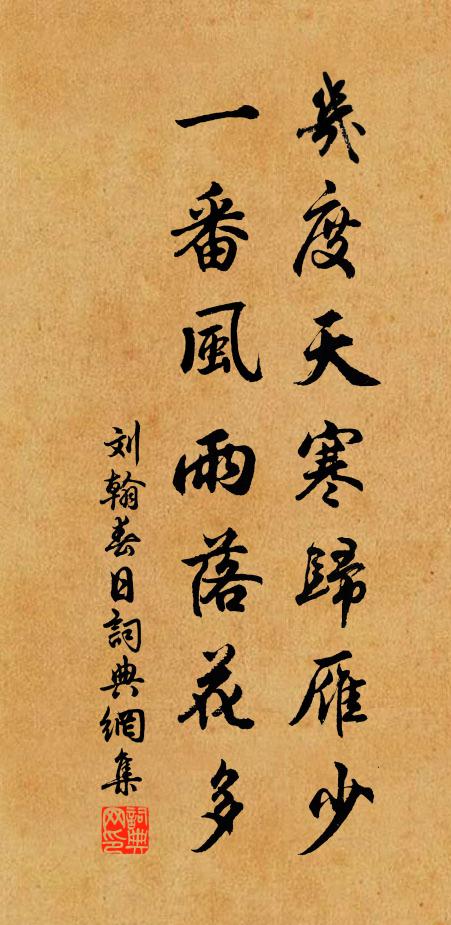 幾度天寒歸雁少
一番風雨落花多
刘翰春日詞典網集
詞典网印